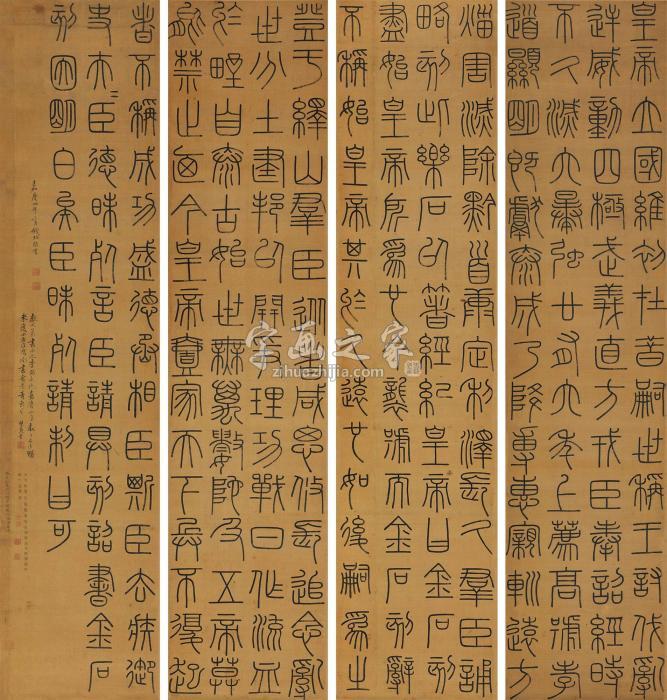 皇帝立國維初在昔嗣世稱王討伐亂
逆威動四極武義直方戎臣奉詔經時
不久滅六暴強廿有六年上薦高號孝
道顯明既獻泰成乃降專惠窺輒遠方
烖害滅除黔首康定利澤長久群臣誦
略刻此樂石以著經紀皇帝曰金石刻
盡始皇帝所為也今襲號而金石刻辭
不稱始皇帝其於久遠也如後嗣為之
登于繹山群臣從者咸思攸長追念亂
世分土建邦以開爭理功戰日作流血
於野自泰古始世無萬數陀及五帝莫
能禁止廼今皇帝壹家天下兵不復起
者不稱成功盛德丞相臣斯臣去疾御
史夫=臣德昧死言臣請具刻詔書金石
刻因明白矣臣昧死請制曰可
嘉慶四年
字画之家
zihuazhijia.com